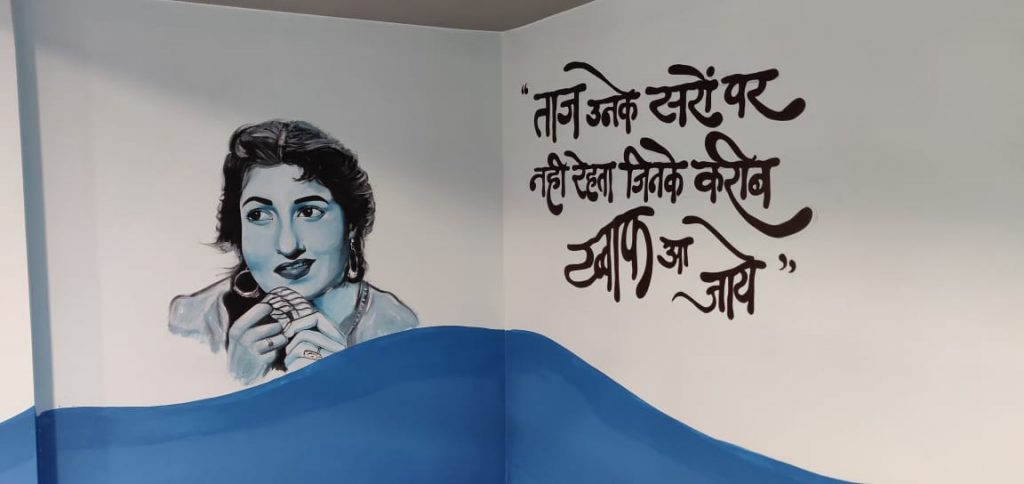 “ताज उनके सरों पर
नही रेहता जिनके करीब
ख्वाफ आ
जाये”